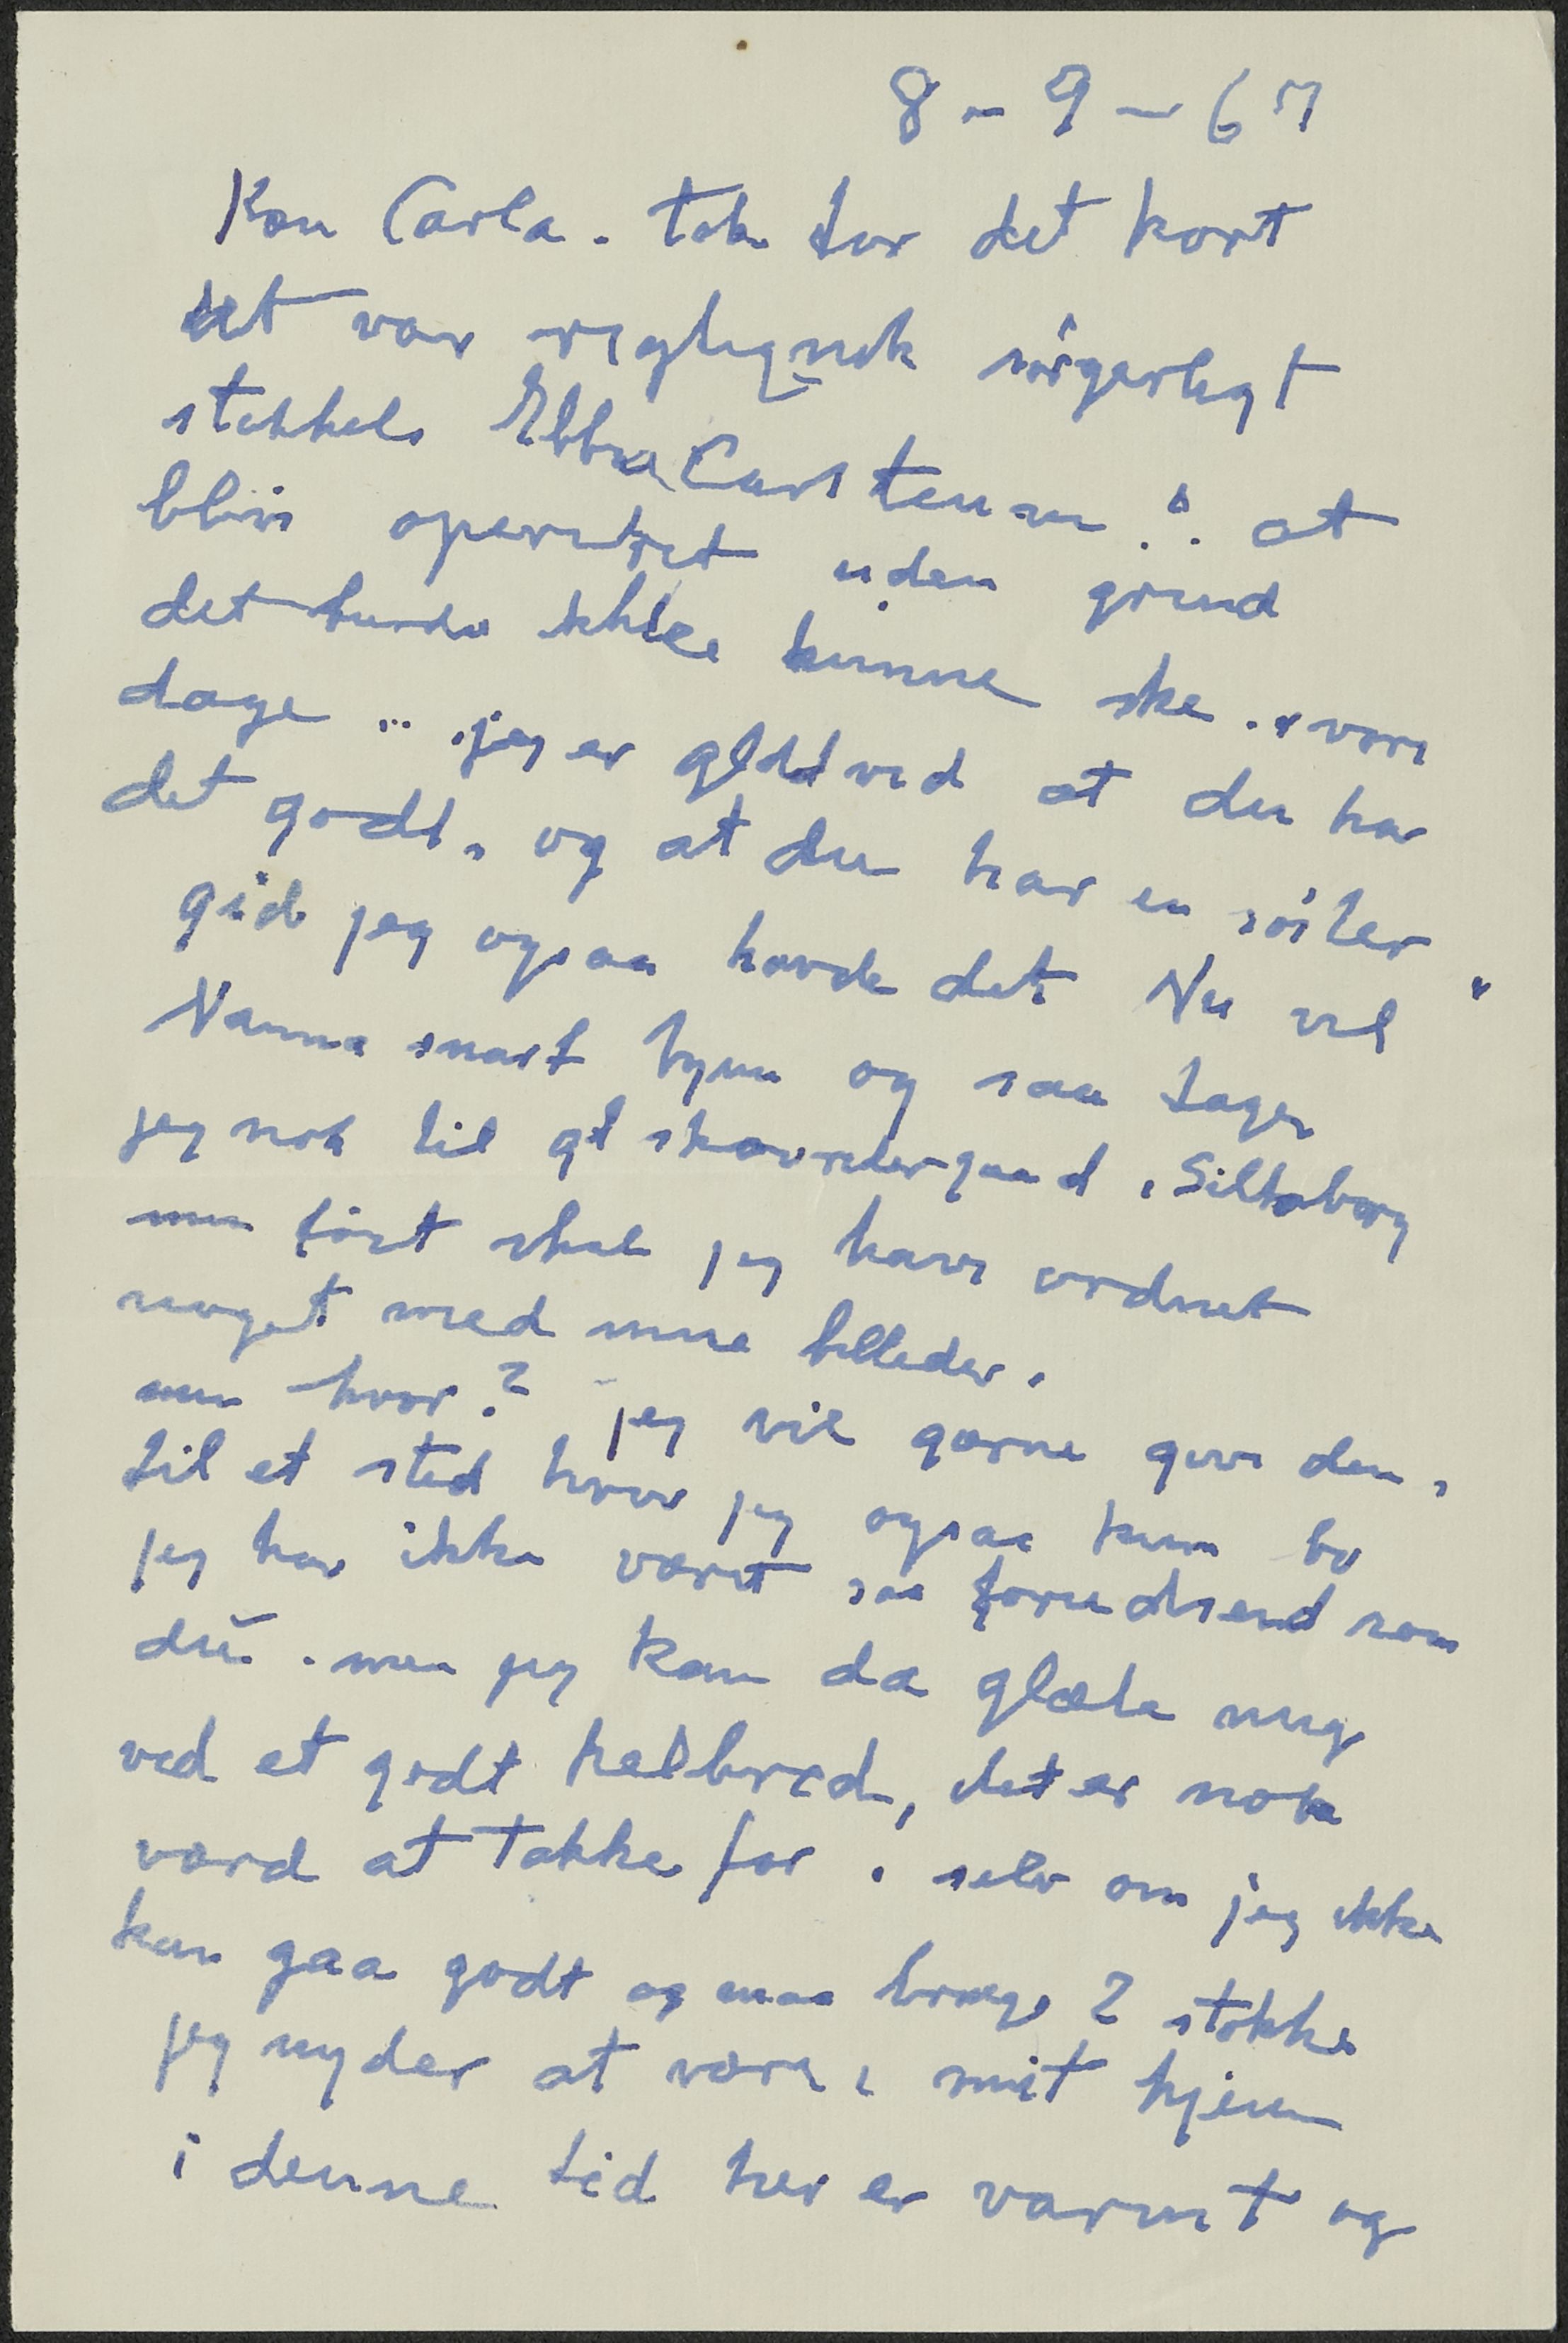 8 - 9 - 67
Kære Carla. tak for det kort
det var rigtignok sörgerligt
stakkels Ebba Carstensen .. at
blive opereret uden grund
det burde ikke kunne ske . i vore
dage ... jeg er glad ved at du har
det godt, og at du har en söster
gid jeg ogsaa havde det. Nu vil
Nanna snart hjem og saa tager
jeg nok til gl skovridergaard , Silkeborg
men först skal jeg have ordnet
noget med mine billeder.
men hvor? jeg vil gærne give dem,
til et sted hvor jeg ogsaa kunne bo
jeg har ikke været saa forudseend som
du . men jeg kan da glæde mig
ved et godt helbred, det er nok
værd at takke for . selv om jeg ikke
kan gaa godt og maa bruge 2 stokke
jeg nyder at være i mit hjem
i denne tid her er varmt og